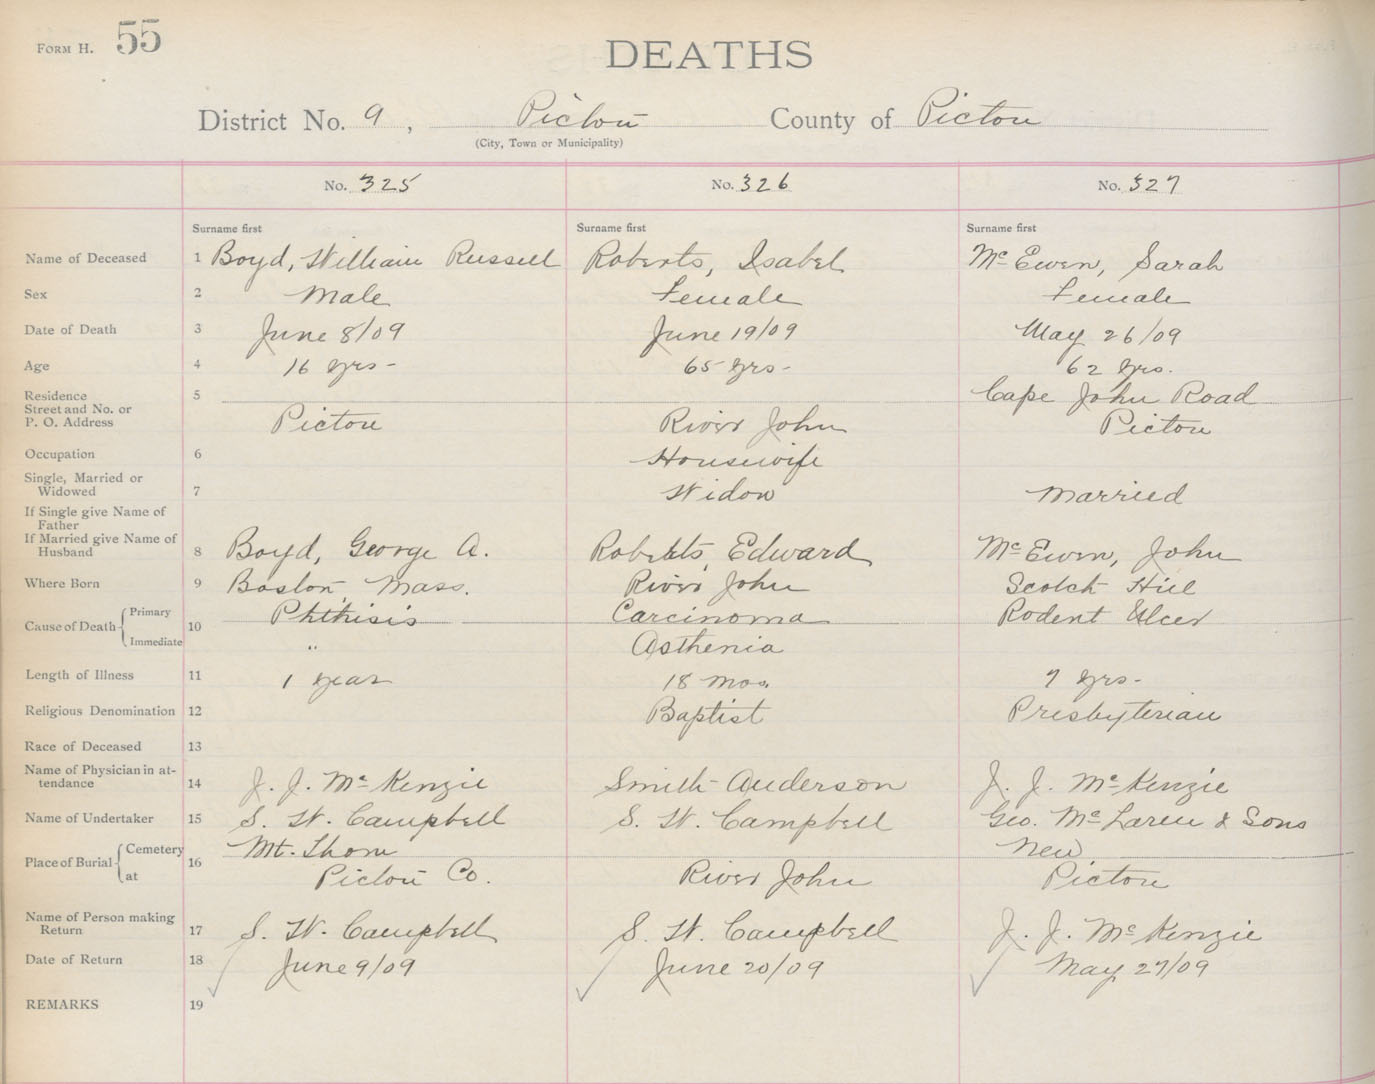 FORM H. 55
DEATHS
District No. 9, Pictou County of Pictou
(City, Town or Municipality)
No. 325 No. 326 No. 327
Surname first Surname first Surname first
Name of Deceased 1 Boyd, William Russell Roberts, Isabel McEwen, Sarah
Sex 2 Male Female Female
Date of Death 3 June 8/09 June 19/09 May 26/09
Age 4 16 yrs- 65 yrs- 62 yrs.
Residence 5 Cape John Road
Street and No. or
P. O. Address Pictou River John Pictou
Occupation 6 Housewife
Single, Married or
Widowed 7 Widow Married
If Single give Name of
Father
If Married give Name of
Husband 8 Boyd, George A. Roberts, Edward McEwen, John
Where Born 9 Boston, Mass. River John Scotch Hill
Cause of Death Primary 10 Phthisis Carcinoma Rodent Ulcer
Immediate " Asthenia
Length of Illness 11 1 year 18 mos. 7 yrs-
Religious Denomination 12 Baptist Presbyterian
Race of Deceased 13
Name of Physician in at-
tendance 14 J. J. McKenzie Smith-Anderson J. J. McKenzie
Name of Undertaker 15 S. W. Campbell S. W. Campbell Geo. McLaren & Sons
Place of Burial Cemetery 16 Mt. Thom New
at Pictou Co. River John Pictou
Name of Person making
Return 17 S. W. Campbell S. W. Campbell J. J. McKenzie
Date of Return 18 June 9/09 June 20/09 May 27/09
REMARKS 19